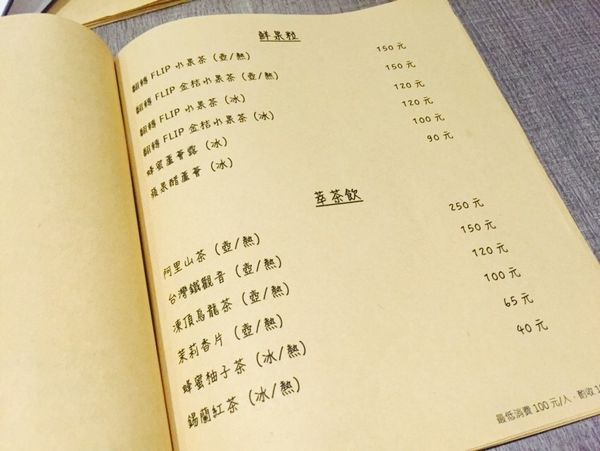 鮮果粒
翻轉 FLIP 水果茶（壺/熱） 150 元
翻轉 FLIP 金桔水果茶（壺/熱） 150 元
翻轉 FLIP 水果茶（冰） 120 元
翻轉 FLIP 金桔水果茶（冰） 120 元
蜂蜜蘆薈露（冰） 100 元
蘋果醋蘆薈（冰） 90 元
萃茶飲
阿里山茶（壺/熱） 250 元
台灣鐵觀音（壺/熱） 150 元
凍頂烏龍茶（壺/熱） 120 元
茉莉香片（壺/熱） 100 元
蜂蜜柚子茶（冰/熱） 65 元
錫蘭紅茶（冰/熱） 40 元
最低消費 100 元/人．酌收 1